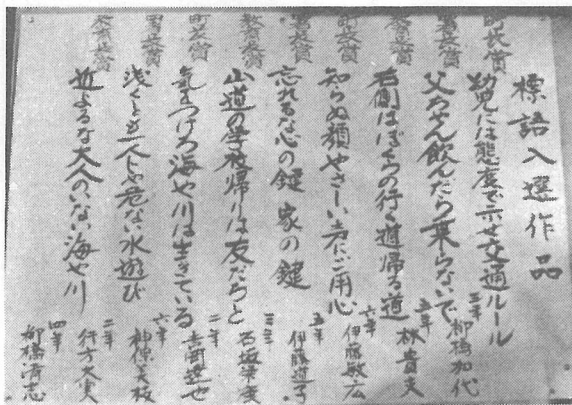 標語入選作品
町長賞 幼児には態度で示せ交通ルール 三年 柳橋加代
署長賞 父ちゃん飲んだら乗らないで 五年 林貴文
教育長賞 右側はぼくらの行く道帰る道 六年 伊藤敏広
町長賞 知らぬ顔やさしい声にご用心 五年 伊藤道子
署長賞 忘れるな心の鍵 家の鍵 三年 石坂
教育長賞 山道の学校帰りは友だちと 二年 吉岡達也
町長賞 気をつけろ海や川は生きている 六年 神保美枝
署長賞 浅くとも一人じゃ危ない水遊び 二年 行方大実
教育長賞 近よるな大人のいない海や川 四年 柳橋清志